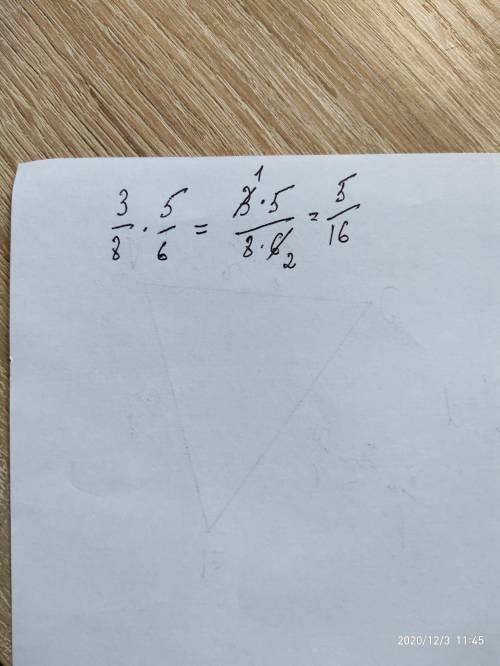 3/8 · 5/6 = 3 · 5 / 8 · 6 = 5/16
1
2
2020/12/3 11:45